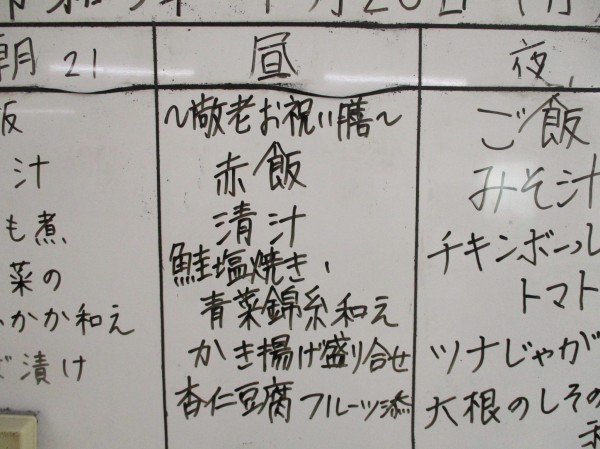 月20日(月
朝 21
飯
汁
も煮
菜の
かか和え
漬け
昼
〜敬老お祝い膳〜
赤飯
清汁
鮭塩焼き、
青菜錦糸和え
かき揚げ盛り合せ
杏仁豆腐フルーツ添
夜
ご飯
みそ汁
チキンボール
トマト
ツナじゃが
大根のしその